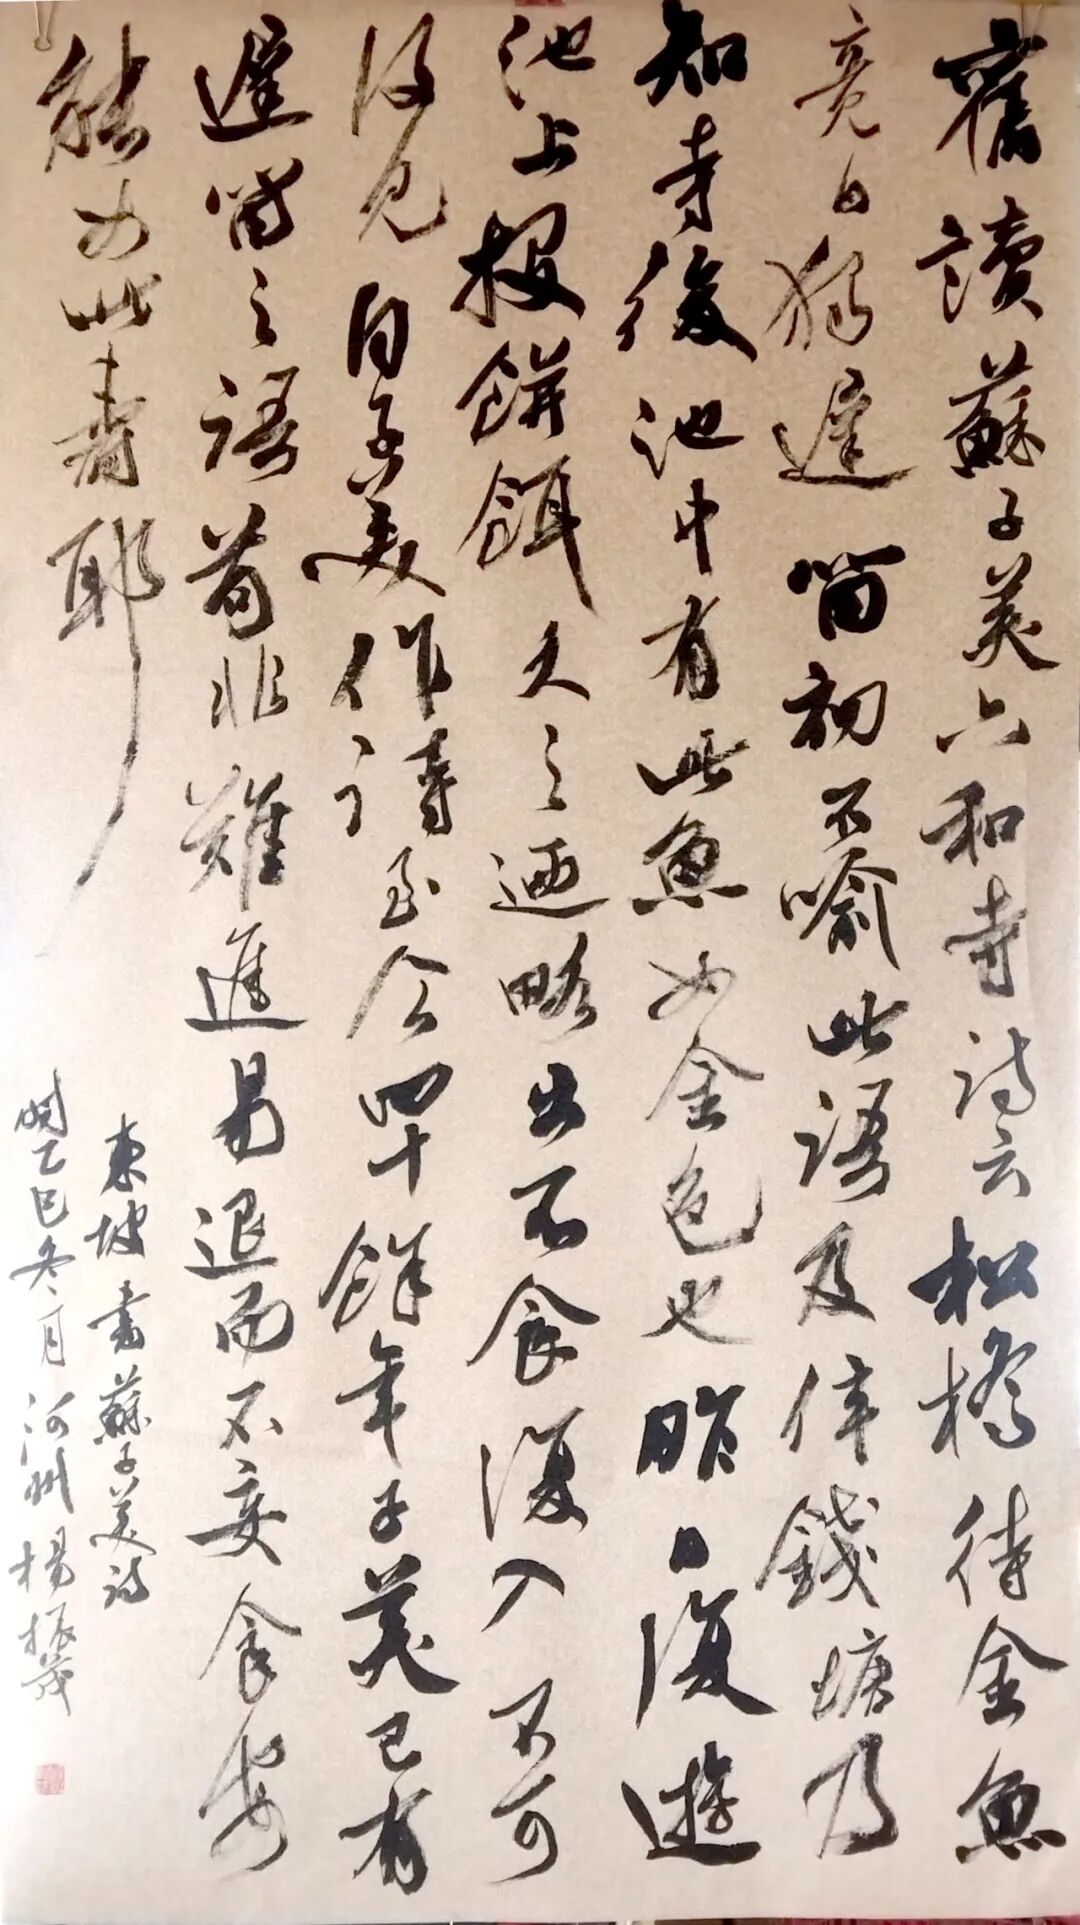 舊讀蘇子美六和寺詩云松橋待金魚
竟日獨遲留初不喻此語及倅錢塘乃
知寺後池中有此魚如金色也昨日復遊
池上投餅餌久之迺略出不食復入不可
復見自子美作詩至今四十餘年子美已有
遲留之語苟非難進易退而不妄食安
能如此壽耶
東坡書蘇子美詩
時乙巳冬月河州楊振